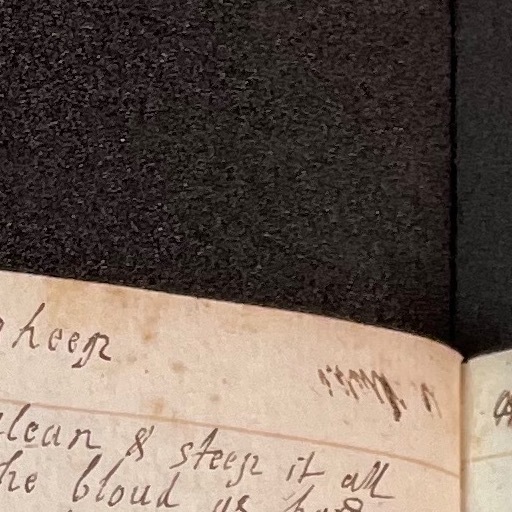 heep
clean & steep it all
he bloud as hard